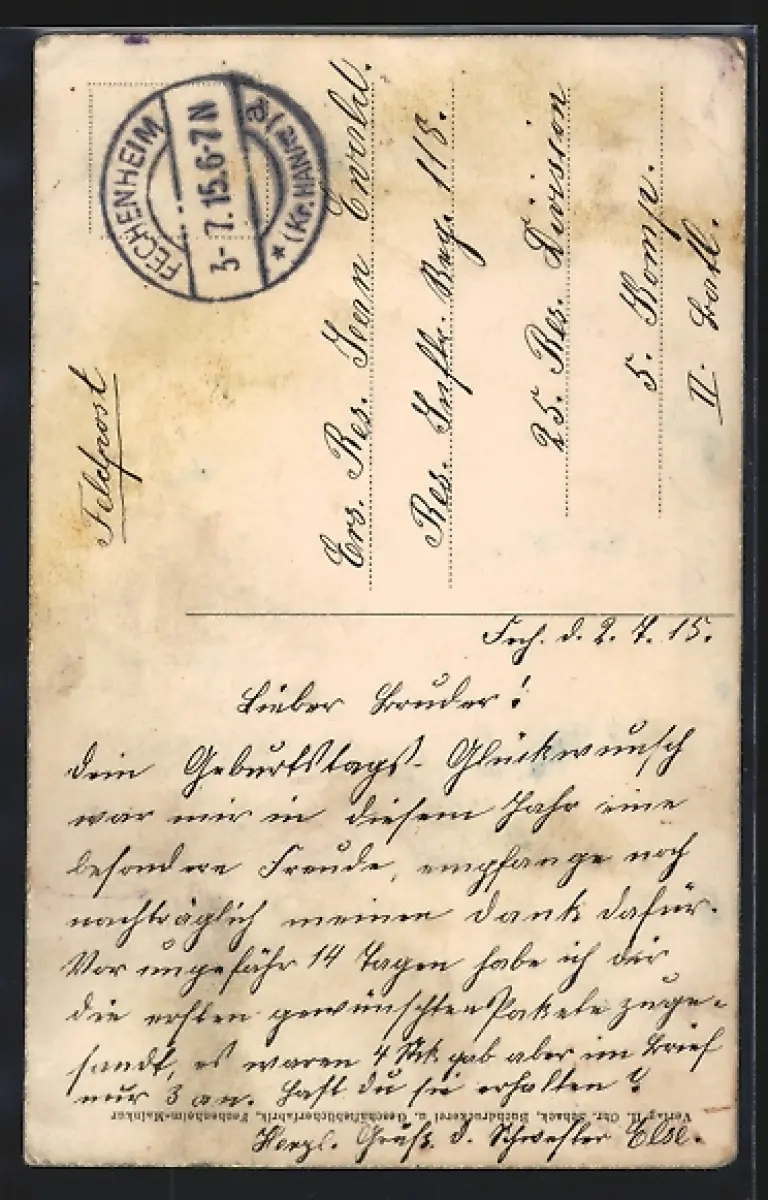 FECHENHEIM
3-7.15.6-7N
* (Kr. HANAU) a.
Feldpost
Ers. Res. Jean Ewald.
Res. Inftr. Reg. 118.
25. Res. Division
5. Komp.
II. Batl.
Fech. d. 2. 7. 15.
Lieber Bruder!
Dein Geburtstags-Glückwunsch
war mir in diesem Jahr eine
besondere Freude, empfange noch
nachträglich meinen Dank dafür.
Vor ungefähr 14 Tagen habe ich dir
die ersten gewünschten Pakete zuge-
sandt, es waren 4 Stk gab aber im Brief
nur 3 an. Hast du sie erhalten?
Herzl. Gruß d. Schwester Else.
Verlag H. Chr. Schack, Buchdruckerei u. Geschäftsbücherfabrik, Fechenheim-Mainkur